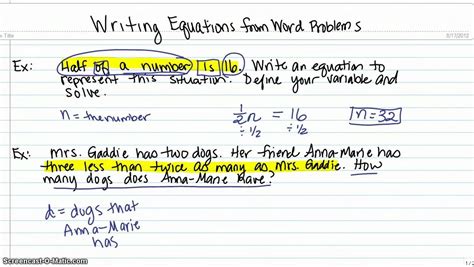 Title
Writing Equations from Word Problems
5/17/2012
Ex: Half of a number is 16. Write an equation to
represent this situation. Define your variable and
solve.
n = the number
1/2 n = 16
÷ 1/2 ÷ 1/2
n = 32
Ex: Mrs. Gaddie has two dogs. Her friend Anna-Marie has
three less than twice as many as Mrs. Gaddie. How
many dogs does Anna-Marie have?
d = dogs that
Anna-Marie
has
Screencast-O-Matic.com